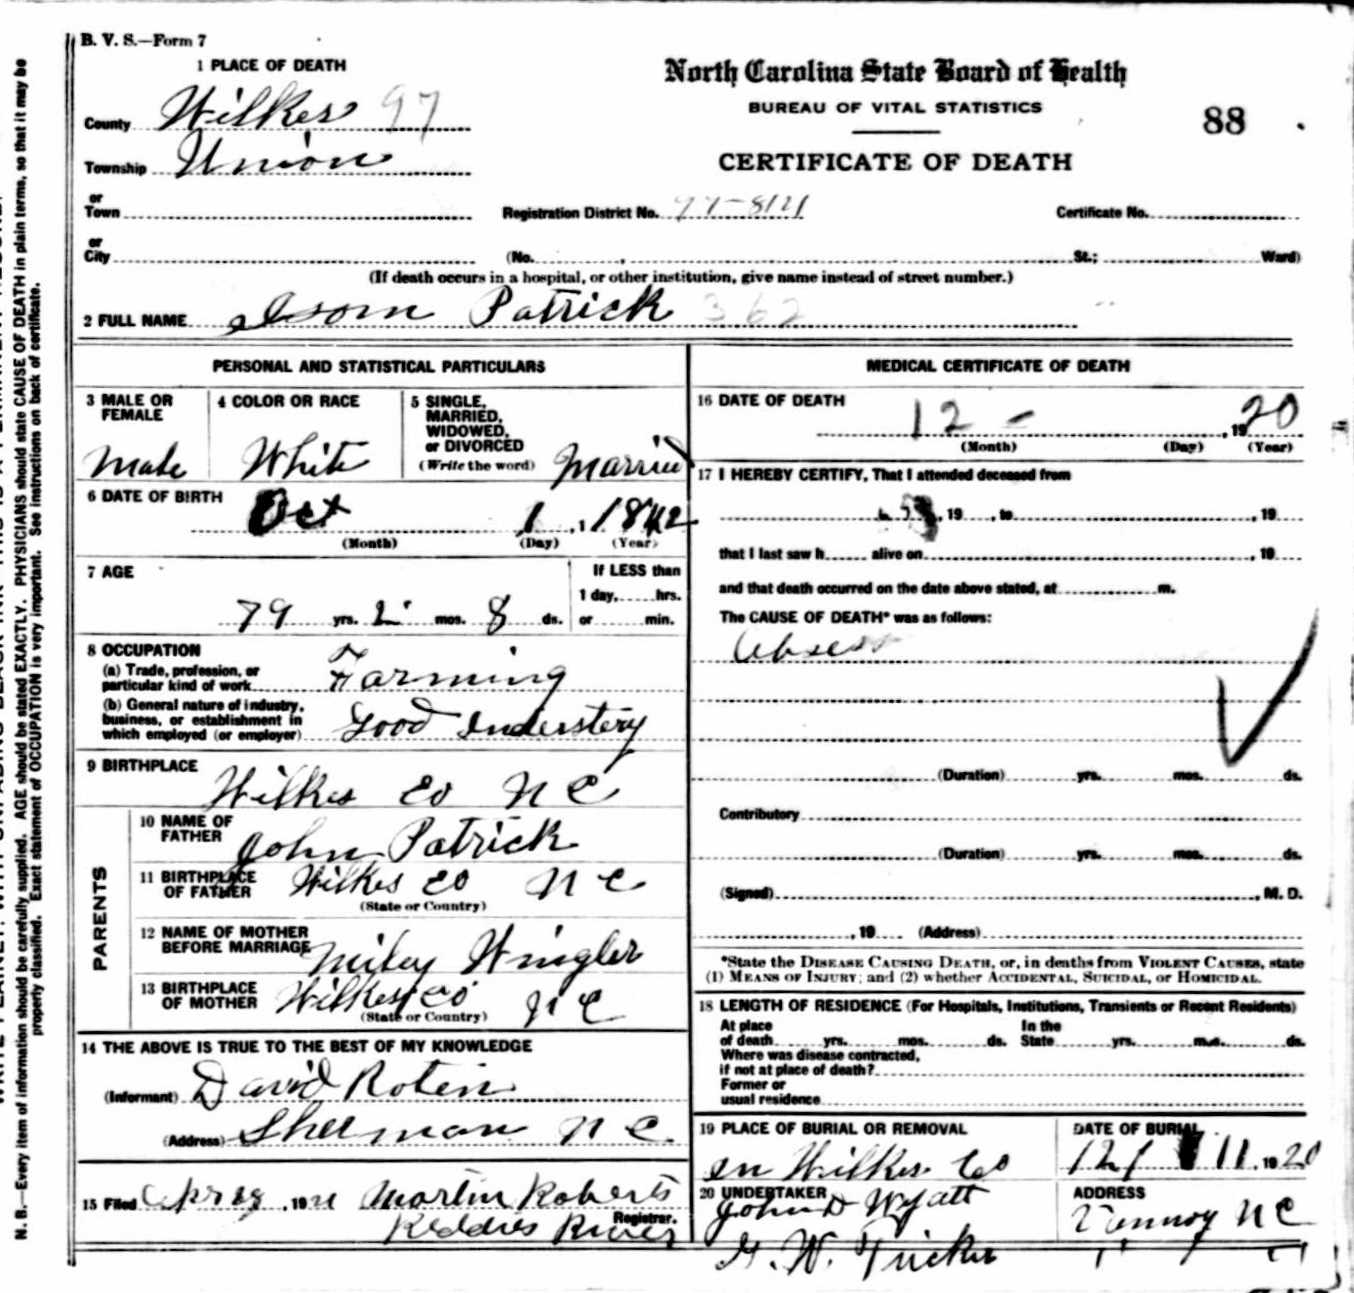 B. V. S.—Form 7
1 PLACE OF DEATH
North Carolina State Board of Health
BUREAU OF VITAL STATISTICS
88
CERTIFICATE OF DEATH
County Wilkes 97
Township Union
or
Town
Registration District No. 97-8121
Certificate No.
or
City (No. , St.; Ward)
(If death occurs in a hospital, or other institution, give name instead of street number.)
2 FULL NAME Isom Patrick 362
PERSONAL AND STATISTICAL PARTICULARS
3 MALE OR FEMALE Male
4 COLOR OR RACE White
5 SINGLE, MARRIED, WIDOWED, or DIVORCED (Write the word) Married
6 DATE OF BIRTH Oct 1, 1 1842
(Month) (Day) (Year)
7 AGE 79 yrs. 2 mos. 8 ds.
If LESS than
1 day, hrs.
or min.
8 OCCUPATION
(a) Trade, profession, or
particular kind of work Farming
(b) General nature of industry,
business, or establishment in
which employed (or employer) Good Understery
9 BIRTHPLACE Wilkes Co N C
PARENTS
10 NAME OF FATHER John Patrick
11 BIRTHPLACE OF FATHER Wilkes Co N C
(State or Country)
12 NAME OF MOTHER BEFORE MARRIAGE Miley Wingler
13 BIRTHPLACE OF MOTHER Wilkes Co N C
(State or Country)
14 THE ABOVE IS TRUE TO THE BEST OF MY KNOWLEDGE
(Informant) David Roten
(Address) Sherman N C.
15 Filed Apr 28, 1921 Martin Roberts
Reddies River Registrar.
MEDICAL CERTIFICATE OF DEATH
16 DATE OF DEATH 12 - , 1920
(Month) (Day) (Year)
17 I HEREBY CERTIFY, That I attended deceased from
, 19 , to , 19
that I last saw h alive on , 19
and that death occurred on the date above stated, at m.
The CAUSE OF DEATH* was as follows:
Absess
(Duration) yrs. mos. ds.
Contributory
(Duration) yrs. mos. ds.
(Signed) , M. D.
, 19 (Address)
*State the DISEASE CAUSING DEATH, or, in deaths from VIOLENT CAUSES, state
(1) MEANS OF INJURY; and (2) whether ACCIDENTAL, SUICIDAL, or HOMICIDAL.
18 LENGTH OF RESIDENCE (For Hospitals, Institutions, Transients or Recent Residents)
At place of death yrs. mos. ds. In the State yrs. mos. ds.
Where was disease contracted,
if not at place of death?
Former or
usual residence
19 PLACE OF BURIAL OR REMOVAL In Wilkes Co
DATE OF BURIAL 12/ 11, 1920
20 UNDERTAKER John D Wyatt
ADDRESS Vannoy N C
" " "
N. B.—Every item of information should be carefully supplied. AGE should be stated EXACTLY. PHYSICIANS should state CAUSE OF DEATH in plain terms, so that it may be
properly classified. Exact statement of OCCUPATION is very important. See instructions on back of certificate.